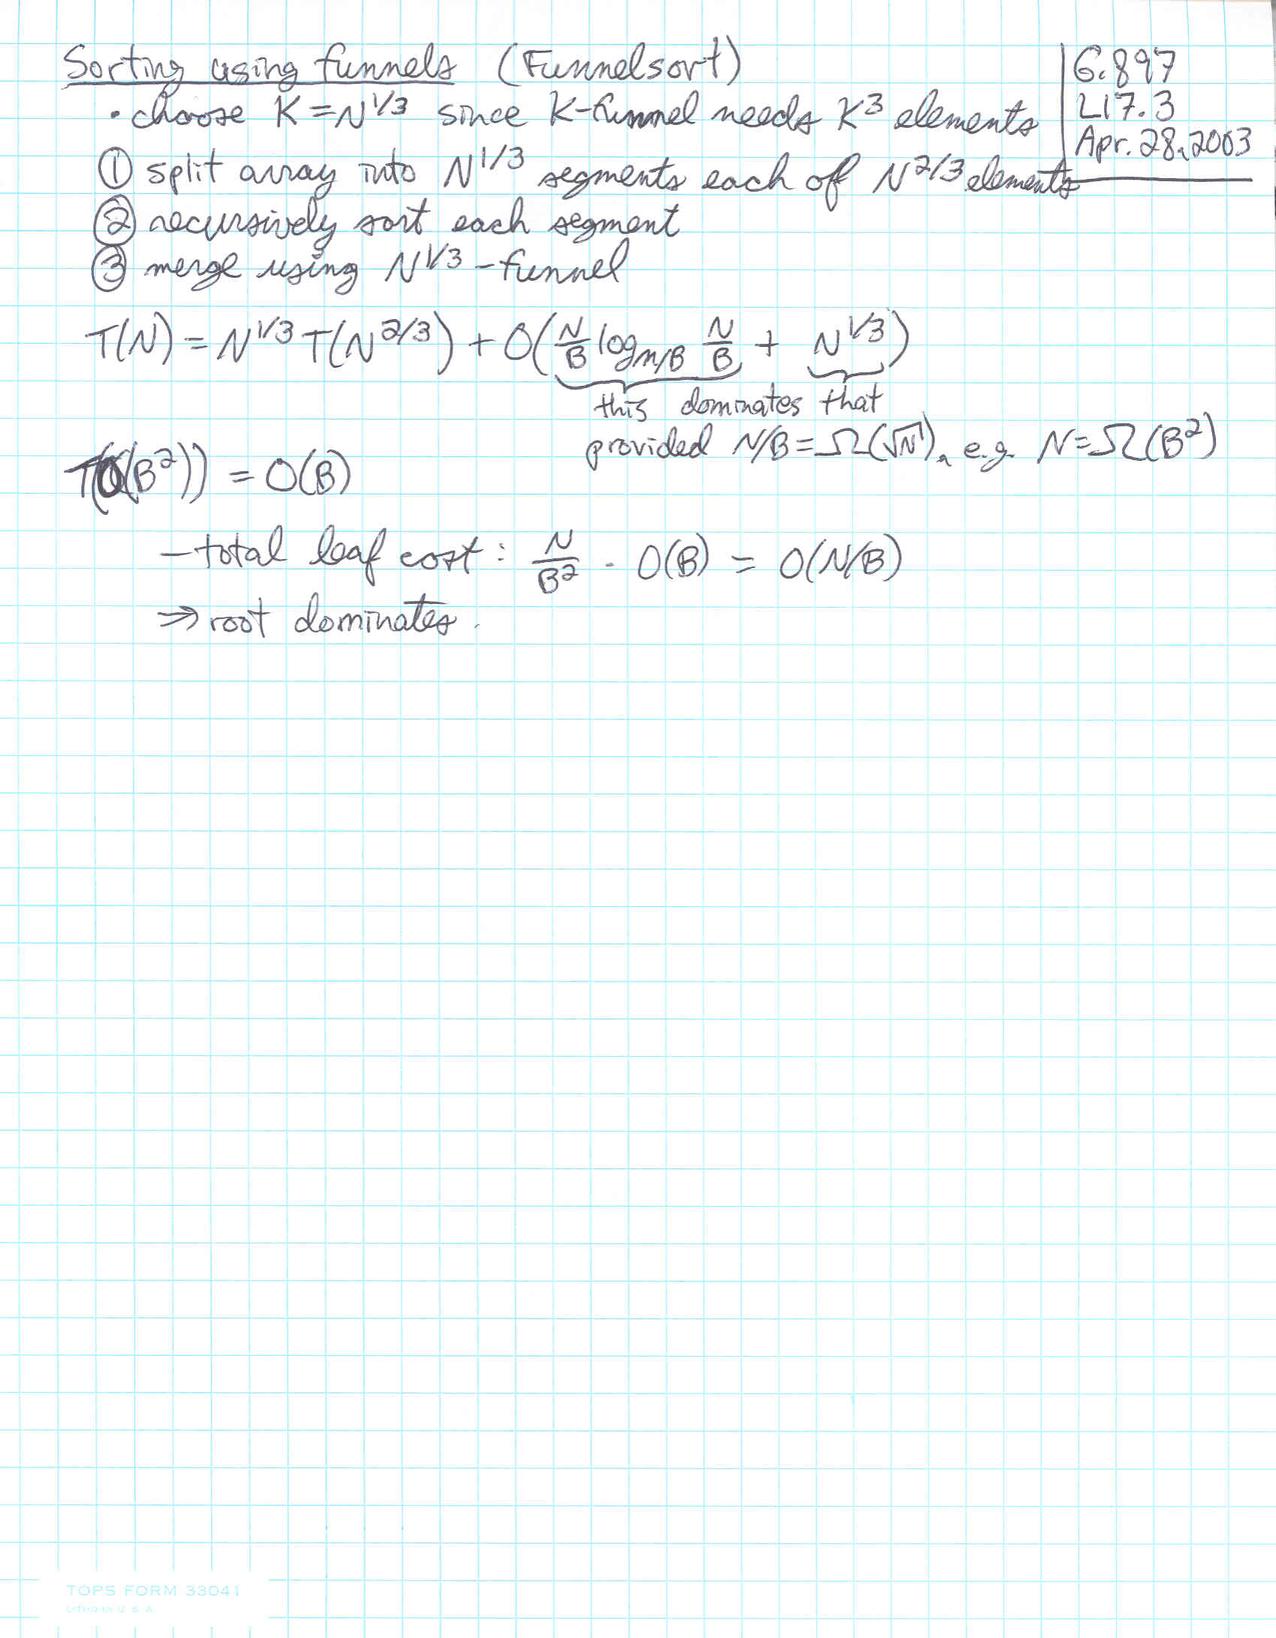 Sorting using funnels (Funnelsort)
6.897
L17.3
Apr. 28, 2003
• choose K = N^1/3 since K-funnel needs K^3 elements
① split array into N^1/3 segments each of N^2/3 elements
② recursively sort each segment
③ merge using N^1/3-funnel
T(N) = N^1/3 T(N^2/3) + O(N/B log_M/B N/B + N^1/3)
this dominates that
provided N/B = Ω(√N), e.g. N = Ω(B^2)
T(O(B^2)) = O(B)
– total leaf cost: N/B^2 · O(B) = O(N/B)
⇒ root dominates.
TOPS FORM 33041